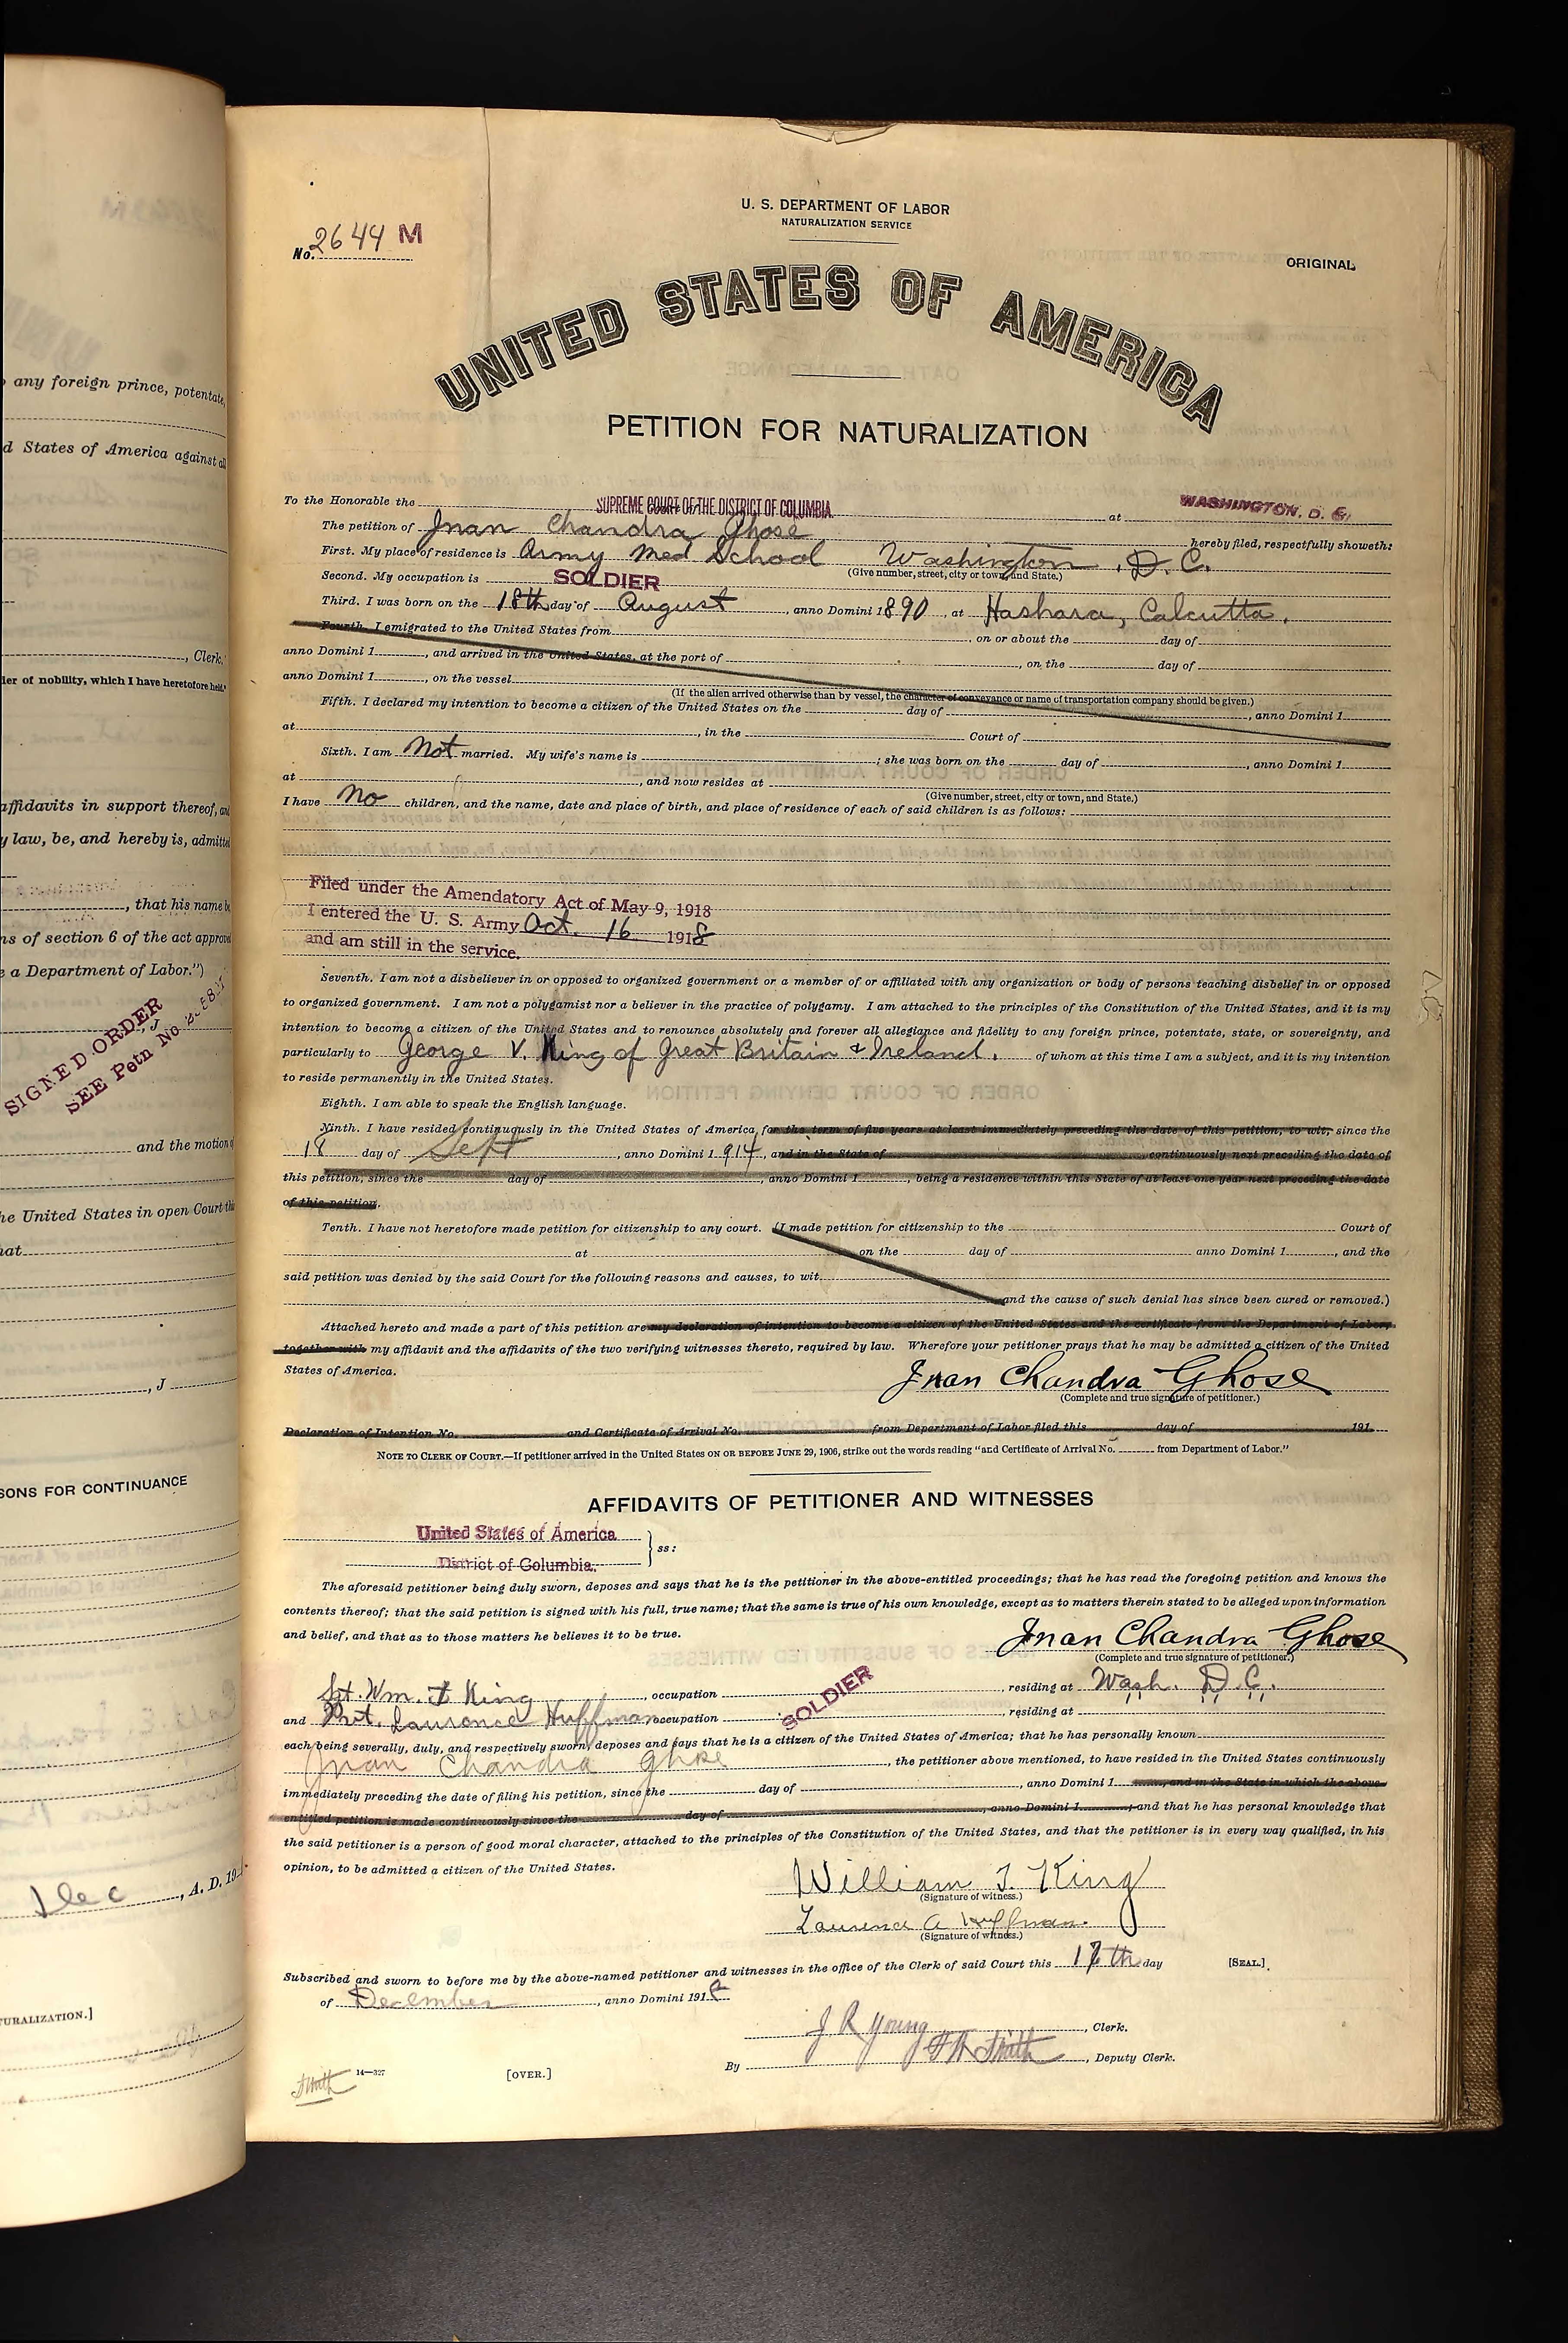 any foreign prince, potentate,
d States of America against all
, Clerk.
der of nobility, which I have heretofore held."
affidavits in support thereof, and
y law, be, and hereby is, admitted
, that his name be
ns of section 6 of the act approved
e a Department of Labor.")
, J
SIGNED ORDER
SEE Petn No.
and the motion
he United States in open Court this
hat
, J
SONS FOR CONTINUANCE
Dec , A. D. 19
TURALIZATION.]
U. S. DEPARTMENT OF LABOR
NATURALIZATION SERVICE
No. 2644 M
ORIGINAL
UNITED STATES OF AMERICA
PETITION FOR NATURALIZATION
To the Honorable the SUPREME COURT OF THE DISTRICT OF COLUMBIA at WASHINGTON, D. C.
The petition of Jnan Chandra Ghose hereby filed, respectfully showeth:
First. My place of residence is Army Med School Washington, D. C.
(Give number, street, city or town, and State.)
Second. My occupation is SOLDIER
Third. I was born on the 18th day of August, anno Domini 1890, at Hashara, Calcutta.
Fourth. I emigrated to the United States from , on or about the day of
anno Domini 1 , and arrived in the United States, at the port of , on the day of
anno Domini 1 , on the vessel
(If the alien arrived otherwise than by vessel, the character of conveyance or name of transportation company should be given.)
Fifth. I declared my intention to become a citizen of the United States on the day of , anno Domini 1
at , in the Court of
Sixth. I am Not married. My wife's name is ; she was born on the day of , anno Domini 1
at , and now resides at
(Give number, street, city or town, and State.)
I have No children, and the name, date and place of birth, and place of residence of each of said children is as follows:
Filed under the Amendatory Act of May 9, 1918
I entered the U. S. Army Oct. 16 1918
and am still in the service.
Seventh. I am not a disbeliever in or opposed to organized government or a member of or affiliated with any organization or body of persons teaching disbelief in or opposed
to organized government. I am not a polygamist nor a believer in the practice of polygamy. I am attached to the principles of the Constitution of the United States, and it is my
intention to become a citizen of the United States and to renounce absolutely and forever all allegiance and fidelity to any foreign prince, potentate, state, or sovereignty, and
particularly to George V. King of Great Britain & Ireland. of whom at this time I am a subject, and it is my intention
to reside permanently in the United States.
Eighth. I am able to speak the English language.
Ninth. I have resided continuously in the United States of America for the term of five years at least immediately preceding the date of this petition, to wit, since the
18 day of Sept , anno Domini 1914, and in the State of continuously next preceding the date of
this petition, since the day of , anno Domini 1 , being a residence within this State of at least one year next preceding the date
of this petition.
Tenth. I have not heretofore made petition for citizenship to any court. (I made petition for citizenship to the Court of
at on the day of anno Domini 1 , and the
said petition was denied by the said Court for the following reasons and causes, to wit
and the cause of such denial has since been cured or removed.)
Attached hereto and made a part of this petition are my declaration of intention to become a citizen of the United States and the certificate from the Department of Labor,
together with my affidavit and the affidavits of the two verifying witnesses thereto, required by law. Wherefore your petitioner prays that he may be admitted a citizen of the United
States of America.
Jnan Chandra Ghose
(Complete and true signature of petitioner.)
Declaration of Intention No. and Certificate of Arrival No. from Department of Labor filed this day of 191
NOTE TO CLERK OF COURT.—If petitioner arrived in the United States ON OR BEFORE JUNE 29, 1906, strike out the words reading "and Certificate of Arrival No. from Department of Labor."
AFFIDAVITS OF PETITIONER AND WITNESSES
United States of America
District of Columbia. } ss:
The aforesaid petitioner being duly sworn, deposes and says that he is the petitioner in the above-entitled proceedings; that he has read the foregoing petition and knows the
contents thereof; that the said petition is signed with his full, true name; that the same is true of his own knowledge, except as to matters therein stated to be alleged upon information
and belief, and that as to those matters he believes it to be true.
Jnan Chandra Ghose
(Complete and true signature of petitioner.)
Sgt. Wm. T King , occupation SOLDIER , residing at Wash. D. C.
and Pvt. Laurence Huffman occupation , residing at " " "
each being severally, duly, and respectively sworn, deposes and says that he is a citizen of the United States of America; that he has personally known
Jnan Chandra Ghose , the petitioner above mentioned, to have resided in the United States continuously
immediately preceding the date of filing his petition, since the day of , anno Domini 1 , and in the State in which the above-
entitled petition is made continuously since the day of , anno Domini 1 , and that he has personal knowledge that
the said petitioner is a person of good moral character, attached to the principles of the Constitution of the United States, and that the petitioner is in every way qualified, in his
opinion, to be admitted a citizen of the United States.
William T. King
(Signature of witness.)
Laurence A Huffman.
(Signature of witness.)
Subscribed and sworn to before me by the above-named petitioner and witnesses in the office of the Clerk of said Court this day [SEAL.]
of December , anno Domini 1918
J R Young , Clerk.
By F H Smith , Deputy Clerk.
Smith 14—327 [OVER.]